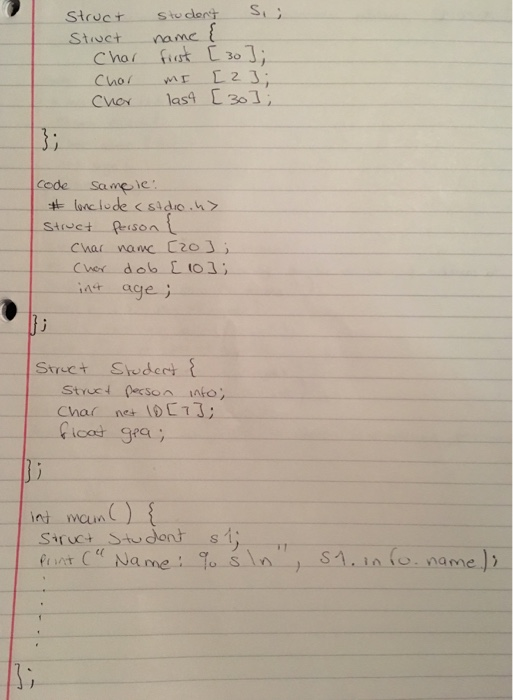 Struct student S1;
Struct name {
Char first [30];
Char MI [2];
Char last [30];
};
code sample:
# Include <stdio.h>
Struct Person {
Char name [20];
Char dob [10];
int age;
};
Struct Student {
Struct person info;
Char net ID[7];
float gpa;
};
int main() {
Struct Student s1;
Print ("Name: %s\n", S1.info.name);
.
.
.
.
.
};